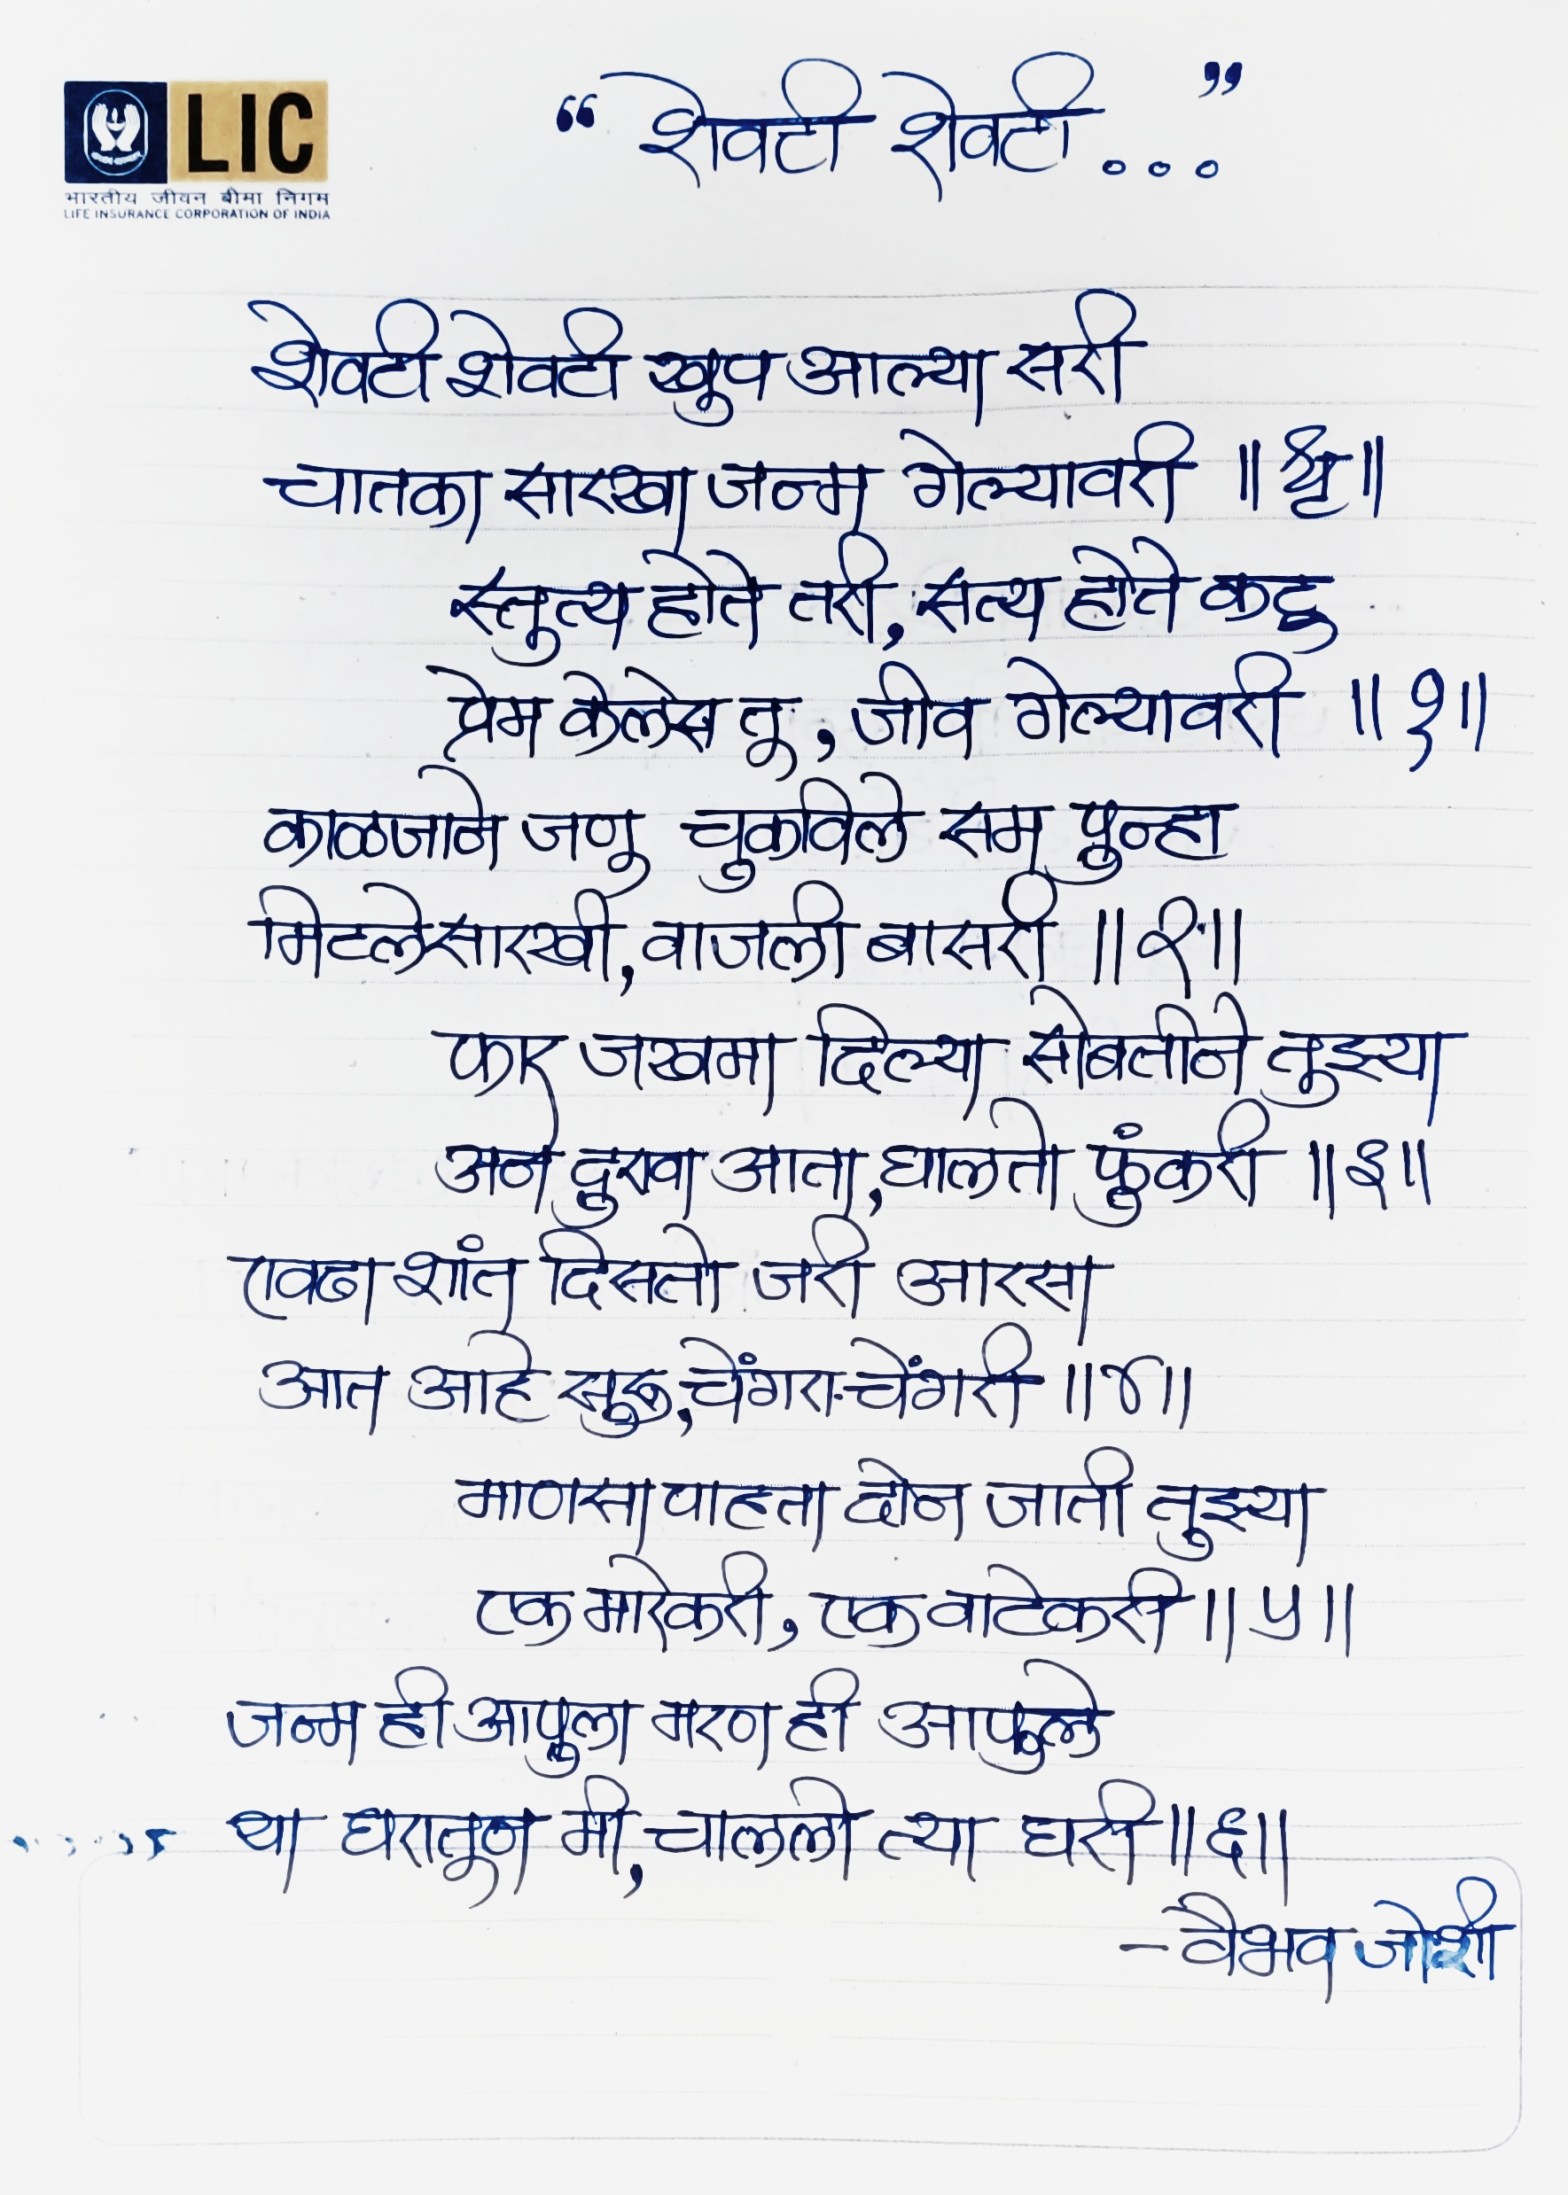 LIC
भारतीय जीवन बीमा निगम
LIFE INSURANCE CORPORATION OF INDIA
“ शेवटी शेवटी . . . ”
शेवटी शेवटी खुप आल्या सरी
चातका सारखा जन्म गेल्यावरी ॥धृ॥
स्तुत्य होते तरी, सत्य होते कटु
प्रेम केलेस तू, जीव गेल्यावरी ॥१॥
काळजाने जणु चुकविले सम पुन्हा
मिटलेसारखी, वाजली बासरी ॥२॥
फार जखमा दिल्या सोबतीने तुझ्या
अन दुरावा आता, घालतो फुंकरी ॥३॥
एवढा शांत दिसतो जरी आरसा
आत आहे सुरू, चेंगरा-चेंगरी ॥४॥
माणसा पाहता दोन जाती तुझ्या
एक मारेकरी, एक वाटेकरी ॥५॥
जन्म ही आपुला मरण ही आपुले
या घरातून मी, चाललो त्या घरी ॥६॥
- वैभव जोशी